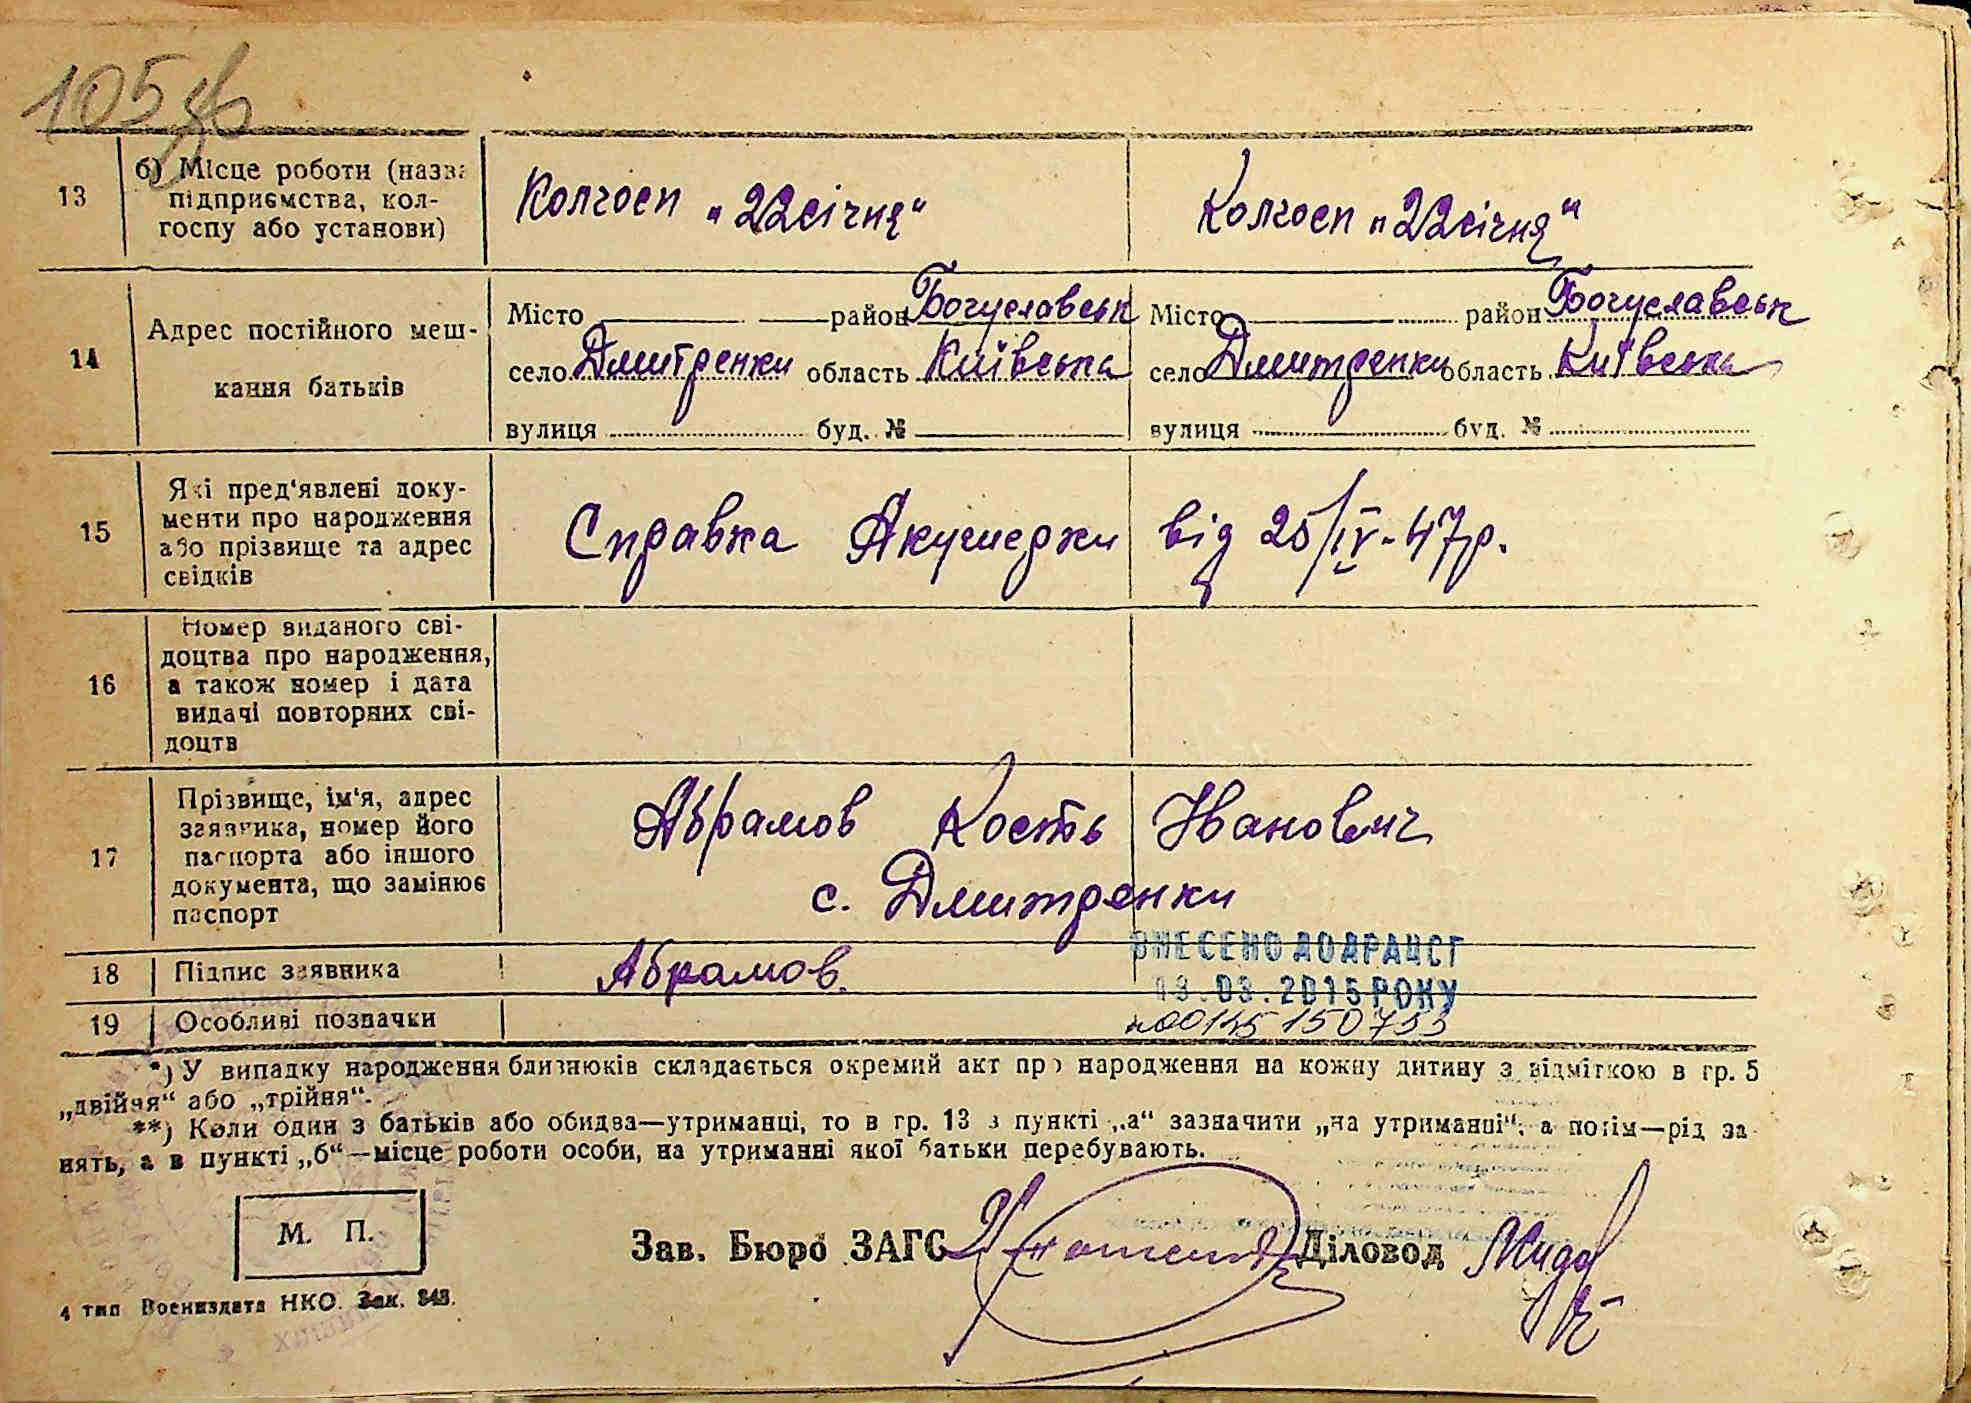 105 зв
13 б) Місце роботи (назва Колгосп „22 січня“ Колгосп „22 січня“
підприємства, кол-
госпу або установи)
14 Адрес постійного меш-
кання батьків
Місто район Богуславськ Місто район Богуславськ
село Дмитренки область Київська село Дмитренки область Київська
вулиця буд. № вулиця буд. №
15 Які пред'явлені доку-
менти про народження
або прізвище та адрес
свідків
Справка Акушерки від 25/IV-47р.
16 Номер виданого сві-
доцтва про народження,
а також номер і дата
видачі повторних сві-
доцтв
17 Прізвище, ім'я, адрес
заявника, номер його
паспорта або іншого
документа, що замінює
паспорт
Абрамов Кость Іванович
с. Дмитренки
18 Підпис заявника Абрамов.
ВНЕСЕНО ДО ДРАЦСГ
03.2015 РОКУ
19 Особливі позначки
*) У випадку народження близнюків складається окремий акт про народження на кожну дитину з відміткою в гр. 5
„двійня“ або „трійня“.
**) Коли один з батьків або обидва—утриманці, то в гр. 13 в пункті „а“ зазначити „на утриманні“, а потім—рід за-
нять, а в пункті „б“—місце роботи особи, на утриманні якої батьки перебувають.
М. П.
Зав. Бюро ЗАГС Діловод
4 тип Воениздата НКО. Зак. 343.